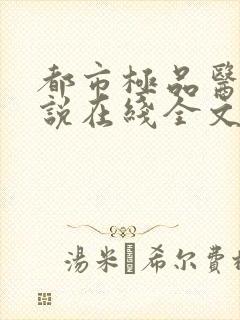 都市極品醫
說在綫全文
湯米 希尔費格